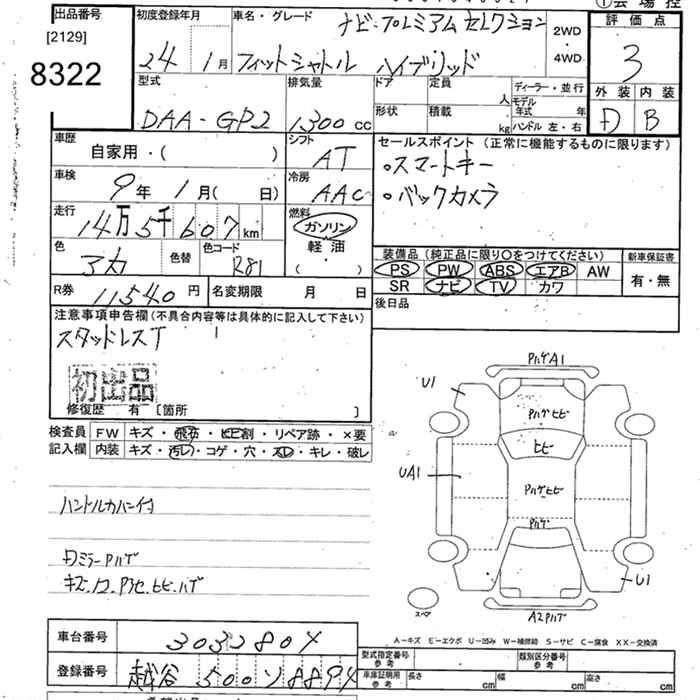 出品番号
[2129]
8322
初度登録年月
24年1月
車名・グレード
ナビ・プレミアムセレクション
フィットシャトル ハイブリッド
2WD
・
4WD
評価点
3
外装 内装
D B
型式
DAA-GP2
排気量
1300cc
ドア 定員 人
形状 積載 kg
ディーラー・並行
モデル年式 年
ハンドル 左・右
車歴
自家用・( )
シフト
AT
車検
9年1月( 日)
冷房
AAC
走行
14万5千607km
燃料
ガソリン
・
軽油
( ・ )
色
アカ
色替
色コード
R81
R券
11540円
名変期限 月 日
セールスポイント(正常に機能するものに限ります)
・スマートキー
・バックカメラ
装備品(純正品に限り○をつけてください)
PS PW ABS エアB AW
SR ナビ TV カワ
新車保証書
有・無
後日品
注意事項申告欄(不具合内容等は具体的に記入して下さい)
スタッドレスT
初出品
修復歴 有 [箇所 ]
検査員記入欄
FW キズ・飛石・ヒビ割・リペア跡・×要
内装 キズ・汚レ・コゲ・穴・スレ・キレ・破レ
ハンドルカバー付
Dミラー Pハゲ
PハゲA1
U1
Pハゲヒビ
ヒビ
UA1
Pハゲヒビ
Pハゲ
U1
A2Pハゲ
スペア
A-キズ E-エクボ U-凹み W-補修跡 S-サビ C-腐食 XX-交換済
車台番号
3032804
登録番号
越谷 500 ソ 8894
型式指定番号
参考
類別区分番号
参考
車庫証明用
参考
長さ cm 幅 cm 高さ cm